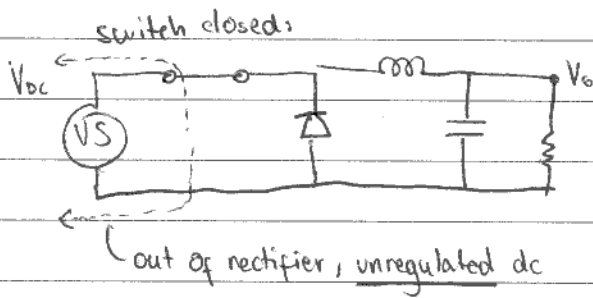 switch closed:
VDC
Vo
VS
out of rectifier, unregulated dc